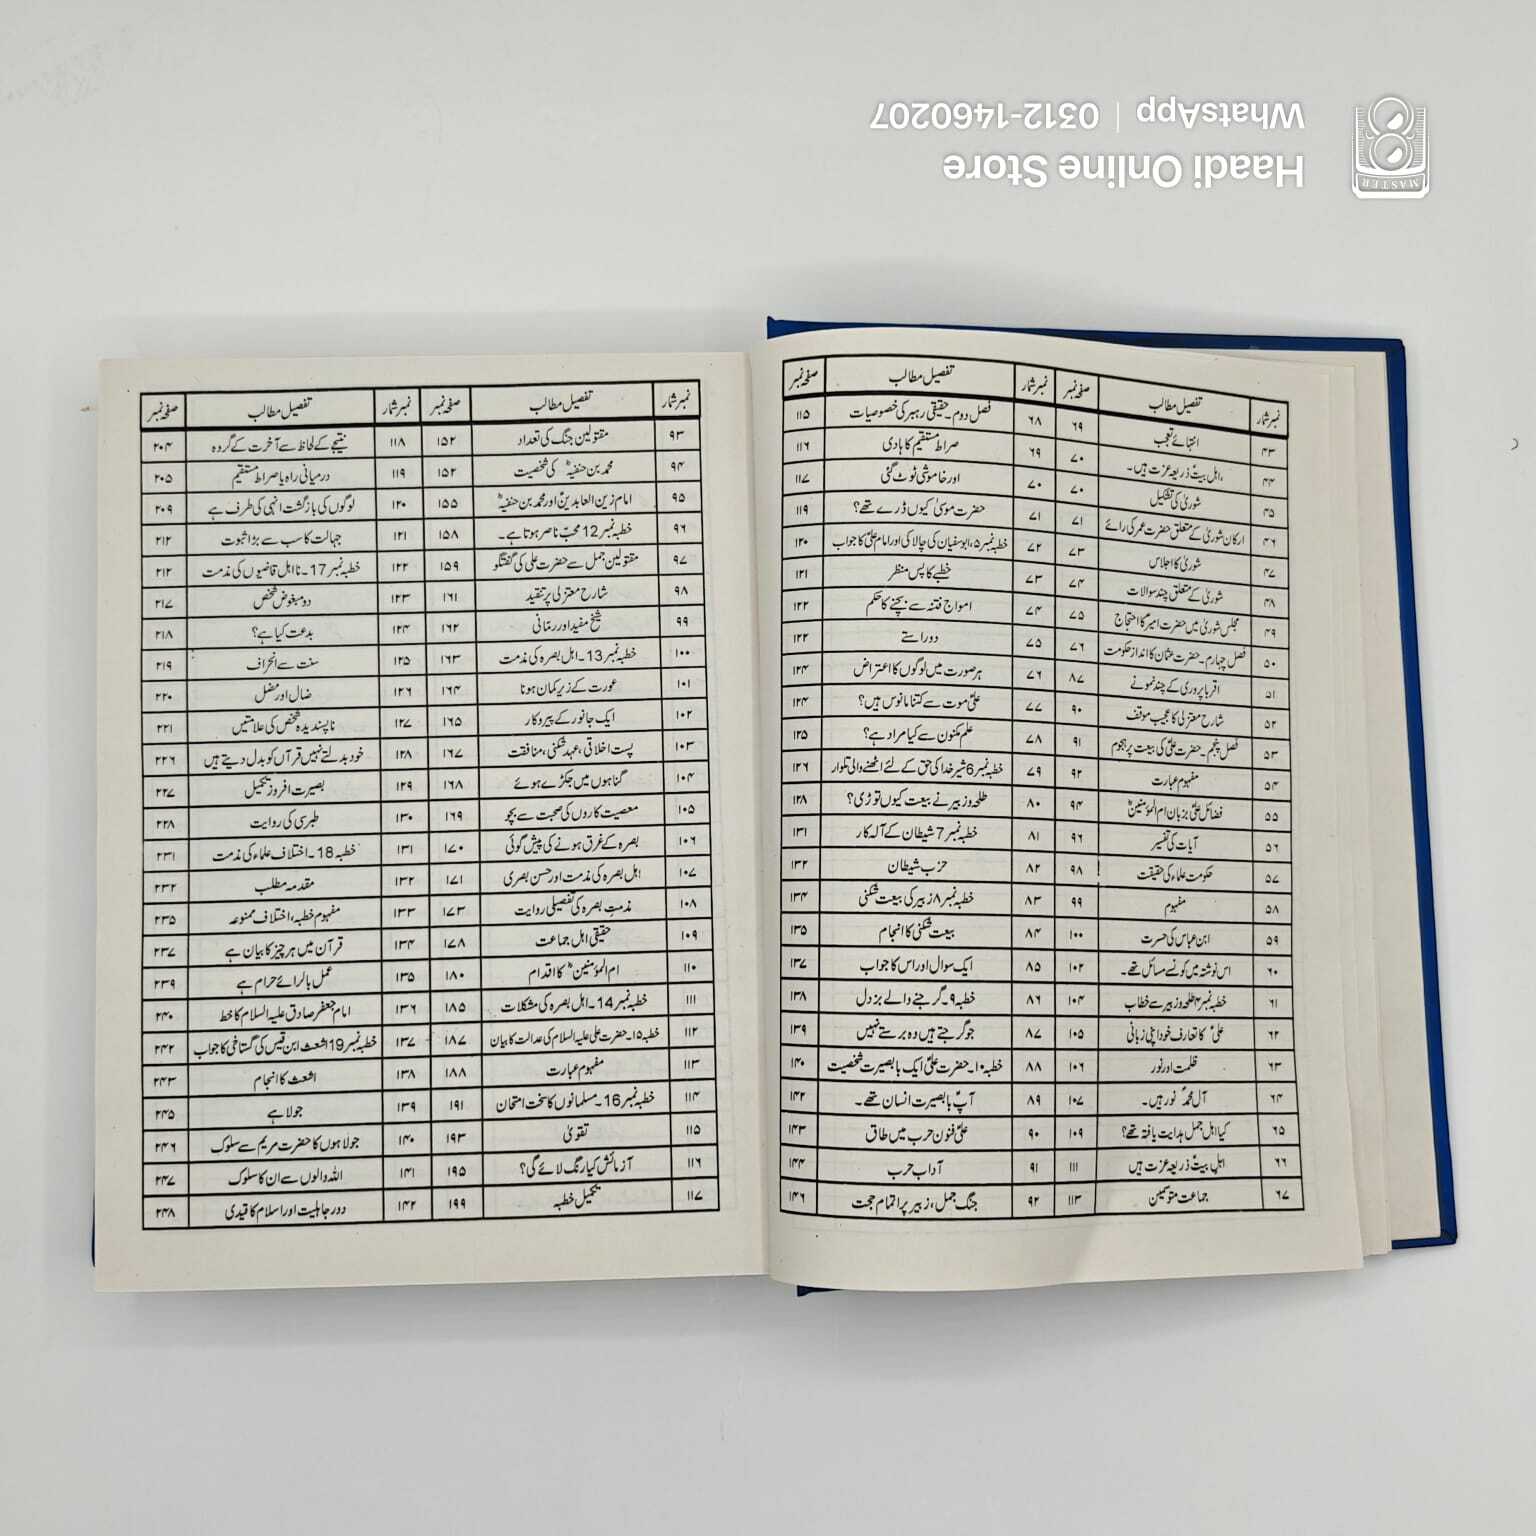 Haadi Online Store
WhatsApp | 0312-1460207
MASTER
نمبرشمار تفصیل مطالب صفحہ نمبر
۴۳ انتہائے تعجب ۶۹
۴۴ اہل بیتؑ ذریعہ عزت ہیں۔ ۷۰
۴۵ شوریٰ کی تشکیل ۷۰
۴۶ ارکان شوریٰ کے متعلق حضرت عمر کی رائے ۷۱
۴۷ شوریٰ کا اجلاس ۷۳
۴۸ شوریٰ کے متعلق چند سوالات ۷۴
۴۹ مجلس شوریٰ میں حضرت امیرؑ کا احتجاج ۷۵
۵۰ فصل چہارم۔ حضرت عثمان کا انداز حکومت ۷۶
۵۱ اقربا پروری کے چند نمونے ۸۷
۵۲ شارح معتزلی کا عجیب موقف ۹۰
۵۳ فصل پنجم۔ حضرت علیؑ کی بیعت پر ہجوم ۹۱
۵۴ مفہوم عبارت ۹۲
۵۵ فضائل علیؑ بزبان ام المؤمنینؓ ۹۴
۵۶ آیات کی تفسیر ۹۶
۵۷ حکومت علماء کی حقیقت ۹۸
۵۸ مفہوم ۹۹
۵۹ ابن عباس کی حسرت ۱۰۰
۶۰ اس نوشتہ میں کونسے مسائل تھے۔ ۱۰۲
۶۱ خطبہ نمبر ۴ طلحہ و زبیر سے خطاب ۱۰۴
۶۲ علیؑ کا تعارف خود اپنی زبانی ۱۰۵
۶۳ ظلمت اور نور ۱۰۶
۶۴ آل محمدؐ نور ہیں۔ ۱۰۷
۶۵ کیا اہل جمل ہدایت یافتہ تھے؟ ۱۰۹
۶۶ اہل بیتؑ ذریعہ عزت ہیں ۱۱۱
۶۷ جماعت متوسمین ۱۱۳
نمبرشمار تفصیل مطالب صفحہ نمبر
۶۸ فصل دوم۔ حقیقی رہبر کی خصوصیات ۱۱۵
۶۹ صراط مستقیم کا ہادی ۱۱۶
۷۰ اور خاموشی ٹوٹ گئی ۱۱۷
۷۱ حضرت موسیٰ کیوں ڈرے تھے؟ ۱۱۹
۷۲ خطبہ نمبر ۵، ابوسفیان کی چالاکی اور امام علیؑ کا جواب ۱۲۰
۷۳ خطبے کا پس منظر ۱۲۱
۷۴ امواج فتنہ سے بچنے کا حکم ۱۲۲
۷۵ دو راستے ۱۲۲
۷۶ ہر صورت میں لوگوں کا اعتراض ۱۲۴
۷۷ علیؑ موت سے کتنا مانوس ہیں؟ ۱۲۴
۷۸ علم مکنون سے کیا مراد ہے؟ ۱۲۵
۷۹ خطبہ نمبر 6 شیر خدا کی حق کے لئے اٹھنے والی تلوار ۱۲۶
۸۰ طلحہ و زبیر نے بیعت کیوں توڑی؟ ۱۲۸
۸۱ خطبہ نمبر 7 شیطان کے آلہ کار ۱۳۱
۸۲ حزب شیطان ۱۳۲
۸۳ خطبہ نمبر ۸ زبیر کی بیعت شکنی ۱۳۴
۸۴ بیعت شکنی کا انجام ۱۳۵
۸۵ ایک سوال اور اس کا جواب ۱۳۷
۸۶ خطبہ ۹۔ گرجنے والے بزدل ۱۳۸
۸۷ جو گرجتے ہیں وہ برستے نہیں ۱۳۹
۸۸ خطبہ ۱۰۔ حضرت علیؑ ایک بابصیرت شخصیت ۱۴۰
۸۹ آپؑ بابصیرت انسان تھے۔ ۱۴۲
۹۰ علیؑ فنون حرب میں طاق ۱۴۳
۹۱ آداب حرب ۱۴۴
۹۲ جنگ جمل، زبیر پر اتمام حجت ۱۴۶
نمبرشمار تفصیل مطالب صفحہ نمبر
۹۳ مقتولین جنگ کی تعداد ۱۵۲
۹۴ محمد بن حنفیہؓ کی شخصیت ۱۵۲
۹۵ امام زین العابدینؑ اور محمد بن حنفیہؓ ۱۵۵
۹۶ خطبہ نمبر 12 محبّ ناصر ہوتا ہے۔ ۱۵۸
۹۷ مقتولین جمل سے حضرت علی کی گفتگو ۱۵۹
۹۸ شارح معتزلی پر تنقید ۱۶۱
۹۹ شیخ مفید اور رمانی ۱۶۲
۱۰۰ خطبہ نمبر 13۔ اہل بصرہ کی مذمت ۱۶۳
۱۰۱ عورت کے زیر کمان ہونا ۱۶۴
۱۰۲ ایک جانور کے پیروکار ۱۶۵
۱۰۳ پست اخلاقی، عہد شکنی، منافقت ۱۶۷
۱۰۴ گناہوں میں جکڑے ہوئے ۱۶۸
۱۰۵ معصیت کاروں کی صحبت سے بچو ۱۶۹
۱۰۶ بصرہ کے غرق ہونے کی پیش گوئی ۱۷۰
۱۰۷ اہل بصرہ کی مذمت اور حسن بصری ۱۷۱
۱۰۸ مذمتِ بصرہ کی تفصیلی روایت ۱۷۳
۱۰۹ حقیقی اہل جماعت ۱۷۸
۱۱۰ ام المؤمنینؓ کا اقدام ۱۸۰
۱۱۱ خطبہ نمبر 14۔ اہل بصرہ کی مشکلات ۱۸۵
۱۱۲ خطبہ ۱۵۔ حضرت علی علیہ السلام کی عدالت کا بیان ۱۸۷
۱۱۳ مفہوم عبارت ۱۸۸
۱۱۴ خطبہ نمبر 16۔ مسلمانوں کا سخت امتحان ۱۹۱
۱۱۵ تقویٰ ۱۹۳
۱۱۶ آزمائش کیا رنگ لائے گی؟ ۱۹۵
۱۱۷ تکمیل خطبہ ۱۹۹
نمبرشمار تفصیل مطالب صفحہ نمبر
۱۱۸ نتیجے کے لحاظ سے آخرت کے گروہ ۲۰۴
۱۱۹ درمیانی راہ یا صراط مستقیم ۲۰۵
۱۲۰ لوگوں کی بازگشت انہی کی طرف ہے ۲۰۹
۱۲۱ جہالت کا سب سے بڑا ثبوت ۲۱۲
۱۲۲ خطبہ نمبر 17۔ نااہل قاضیوں کی مذمت ۲۱۲
۱۲۳ دو مبغوض شخص ۲۱۷
۱۲۴ بدعت کیا ہے؟ ۲۱۸
۱۲۵ سنت سے انحراف ۲۱۹
۱۲۶ ضال اور مضل ۲۲۰
۱۲۷ ناپسندیدہ شخص کی علامتیں ۲۲۱
۱۲۸ خود بدلتے نہیں قرآں کو بدل دیتے ہیں ۲۲۶
۱۲۹ بصیرت افروز تکمیل ۲۲۷
۱۳۰ طبرسی کی روایت ۲۲۸
۱۳۱ خطبہ 18۔ اختلاف علماء کی مذمت ۲۳۱
۱۳۲ مقدمہ مطلب ۲۳۲
۱۳۳ مفہوم خطبہ، اختلاف ممنوعہ ۲۳۵
۱۳۴ قرآن میں ہر چیز کا بیان ہے ۲۳۷
۱۳۵ عمل بالرائے حرام ہے ۲۳۹
۱۳۶ امام جعفر صادق علیہ السلام کا خط ۲۴۰
۱۳۷ خطبہ نمبر 19 اشعث ابن قیس کی گستاخی کا جواب ۲۴۲
۱۳۸ اشعث کا انجام ۲۴۳
۱۳۹ جولاہے ۲۴۵
۱۴۰ جولاہوں کا حضرت مریم سے سلوک ۲۴۶
۱۴۱ اللہ والوں سے ان کا سلوک ۲۴۷
۱۴۲ دور جاہلیت اور اسلام کا قیدی ۲۴۸